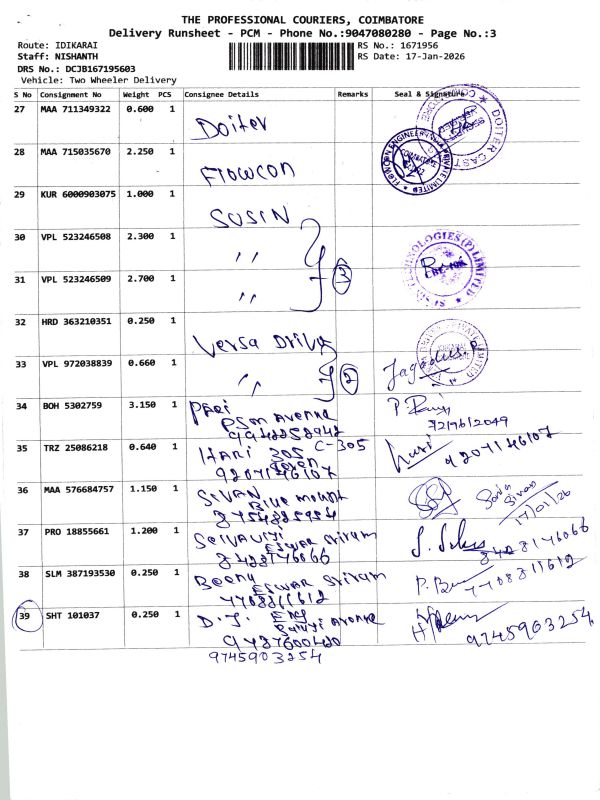 THE PROFESSIONAL COURIERS, COIMBATORE
Delivery Runsheet - PCM - Phone No.:9047080280 - Page No.:3
Route: IDIKARAI RS No.: 1671956
Staff: NISHANTH RS Date: 17-Jan-2026
DRS No.: DCJB167195603
Vehicle: Two Wheeler Delivery
S No Consignment No Weight PCS Consignee Details Remarks Seal & Signature
27 MAA 711349322 0.600 1 Doiter
28 MAA 715035670 2.250 1 Flowcon
29 KUR 6000903075 1.000 1 SUSIN
30 VPL 523246508 2.300 1 ,,
31 VPL 523246509 2.700 1 ,, 3
32 HRD 363210351 0.250 1 Versa Drives
33 VPL 972038839 0.660 1 ,, 2
34 BOH 5302759 3.150 1
Avenue
35 TRZ 25086218 0.640 1 HARI 305 C-305
9207146107 9207146107
36 MAA 576684757 1.150 1 SIVAN
Blue mount
17/01/26
37 PRO 18855661 1.200 1
ESWAR Sriram
8428146066
38 SLM 387193530 0.250 1 Beena
ESWAR Sriram
7708811612
39 SHT 101037 0.250 1 D.J.
Avenue
9745903254
9745903254